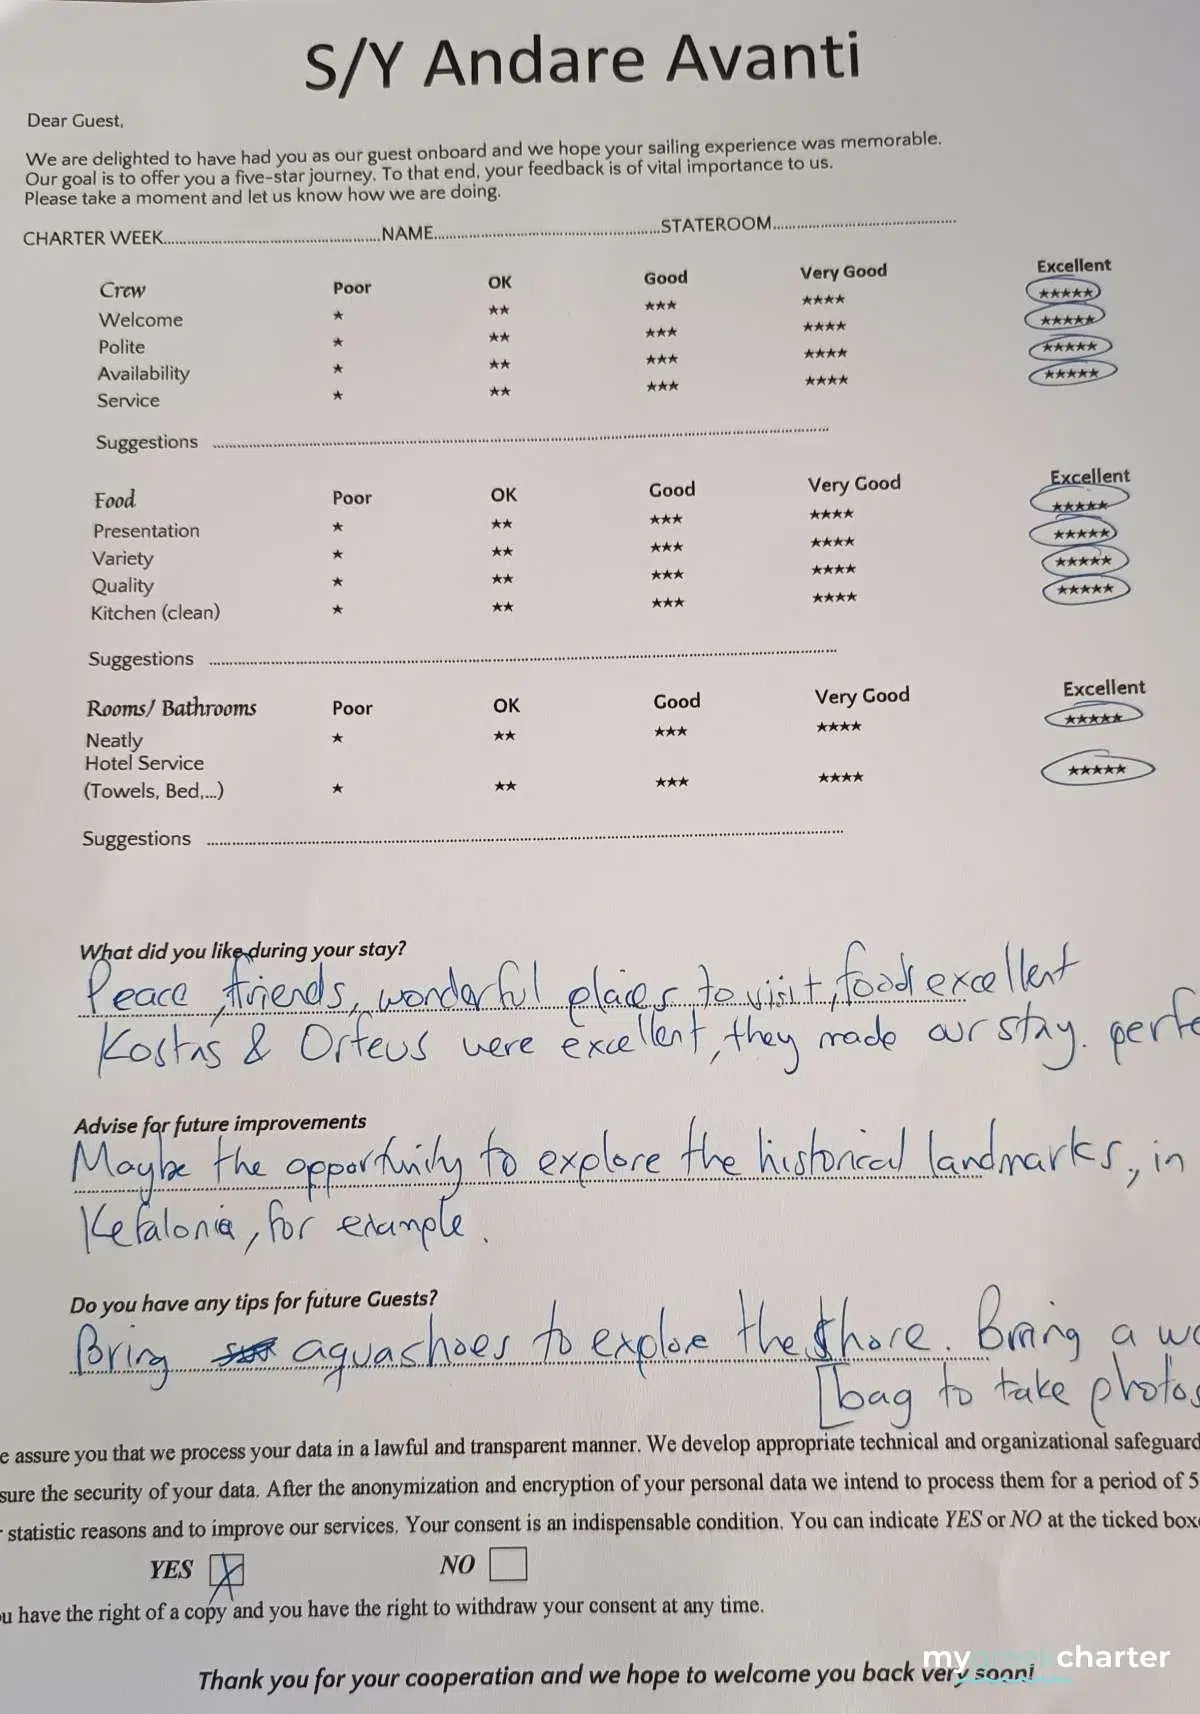 S/Y Andare Avanti
Dear Guest,
We are delighted to have had you as our guest onboard and we hope your sailing experience was memorable.
Our goal is to offer you a five-star journey. To that end, your feedback is of vital importance to us.
Please take a moment and let us know how we are doing.
CHARTER WEEK........................NAME........................STATEROOM........................
Crew Poor OK Good Very Good Excellent
Welcome ★ ★★ ★★★ ★★★★ ★★★★★
Polite ★ ★★ ★★★ ★★★★ ★★★★★
Availability ★ ★★ ★★★ ★★★★ ★★★★★
Service ★ ★★ ★★★ ★★★★ ★★★★★
Suggestions ........................
Food Poor OK Good Very Good Excellent
Presentation ★ ★★ ★★★ ★★★★ ★★★★★
Variety ★ ★★ ★★★ ★★★★ ★★★★★
Quality ★ ★★ ★★★ ★★★★ ★★★★★
Kitchen (clean) ★ ★★ ★★★ ★★★★ ★★★★★
Suggestions ........................
Rooms/ Bathrooms Poor OK Good Very Good Excellent
Neatly ★ ★★ ★★★ ★★★★ ★★★★★
Hotel Service
(Towels, Bed,...) ★ ★★ ★★★ ★★★★ ★★★★★
Suggestions ........................
What did you like during your stay?
Peace, friends, wonderful places to visit, food excellent
Kostas & Orfeus were excellent, they made our stay. perfe
Advise for future improvements
Maybe the opportunity to explore the historical landmarks, in
Kefalonia, for example.
Do you have any tips for future Guests?
Bring aquashoes to explore the shore. Bring a
bag to take photos
e assure you that we process your data in a lawful and transparent manner. We develop appropriate technical and organizational safeguard
sure the security of your data. After the anonymization and encryption of your personal data we intend to process them for a period of 5
statistic reasons and to improve our services. Your consent is an indispensable condition. You can indicate YES or NO at the ticked box
YES X NO
ou have the right of a copy and you have the right to withdraw your consent at any time.
mygreekcharter
Thank you for your cooperation and we hope to welcome you back very soon!